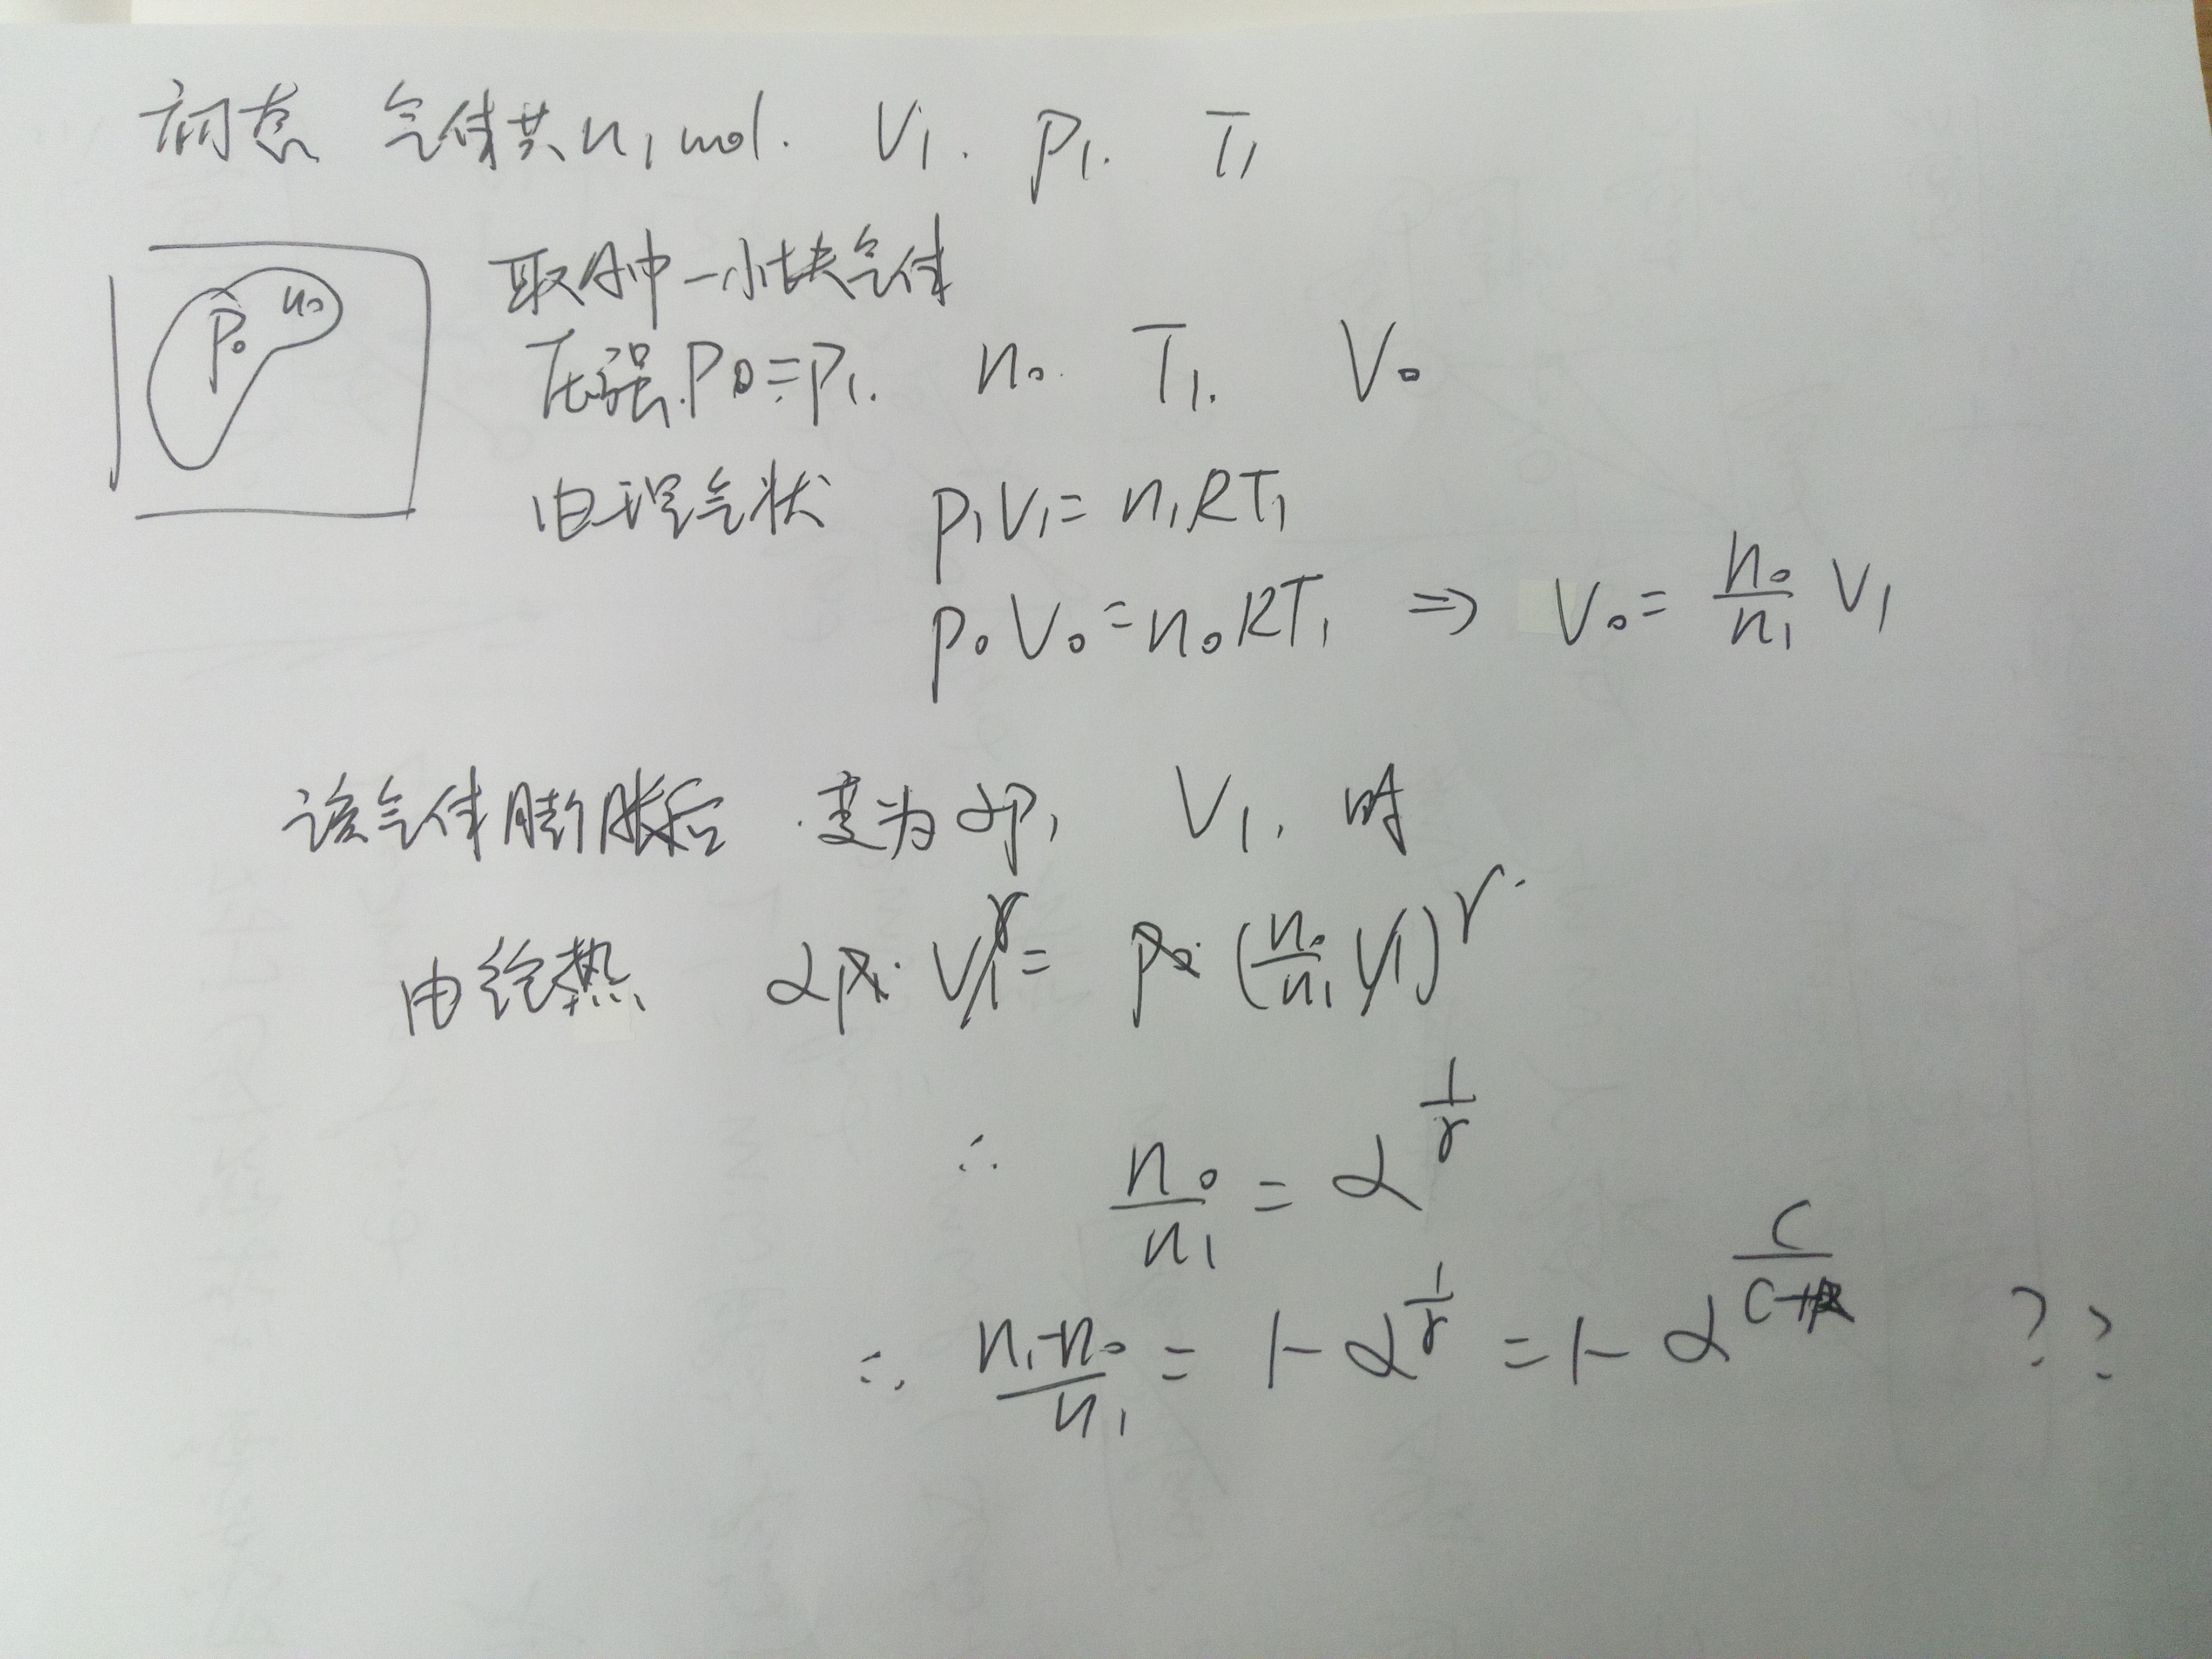 初态 气体共 n₁ mol. V₁. p₁. T₁
p₀ n₀
取其中一小块气体
压强 p₀=p₁. n₀. T₁. V₀
由理气状 p₁V₁=n₁RT₁
p₀V₀=n₀RT₁ ⇒ V₀= n₀/n₁ V₁
该气体膨胀后.变为αp₁ V₁.时
由绝热 αp₁·V₁^γ= p₀·(n₀/n₁ V₁)^γ.
∴ n₀/n₁ = α^(1/γ)
∴ (n₁-n₀)/n₁ = 1-α^(1/γ) = 1-α^(C/(C+R)) ??